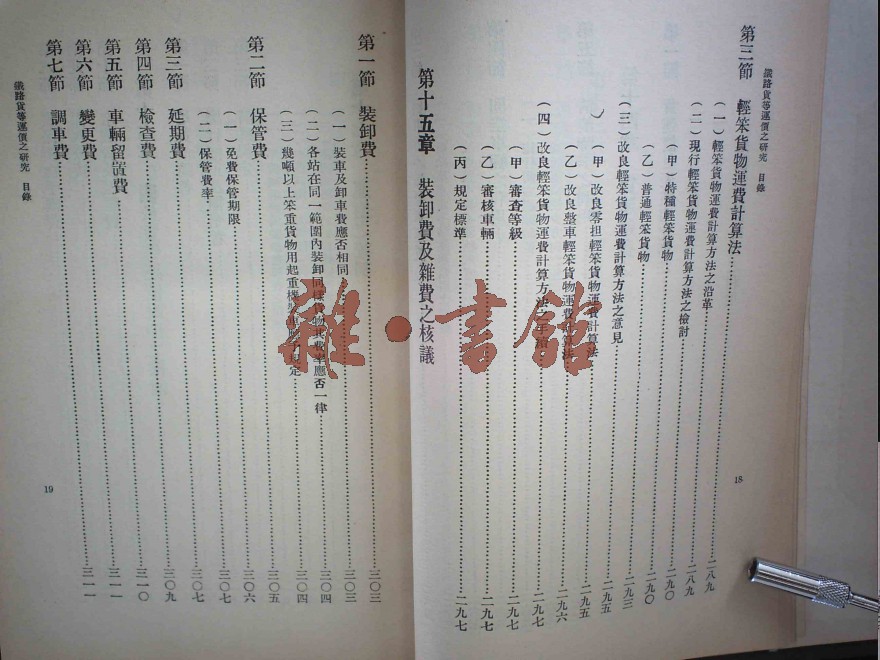 鐵路貨等運價之研究 目錄
第三節 輕笨貨物運費計算法 二八九
(一)輕笨貨物運費計算方法之沿革 二八九
(二)現行輕笨貨物運費計算方法之檢討 二八九
(甲)特種輕笨貨物 二九〇
(乙)普通輕笨貨物 二九〇
(三)改良輕笨貨物運費計算方法之意見 二九三
(甲)改良零担輕笨貨物運費計算法 二九五
(乙)改良整車輕笨貨物運費計算法 二九六
(四)改良輕笨貨物運費計算方法之 二九七
(甲)審查等級 二九七
(乙)審核車輛 二九七
(丙)規定標準 二九七
第十五章 裝卸費及雜費之核議
18
第一節 裝卸費 三〇三
(一)裝車及卸車費應否相同 三〇三
(二)各站在同一範圍內裝卸同樣貨物其費率應否一律 三〇四
(三)幾噸以上笨重貨物用起重機 定 三〇四
第二節 保管費 三〇五
(一)免費保管期限 三〇六
(二)保管費率 三〇七
第三節 延期費 三〇七
第四節 檢查費 三〇九
第五節 車輛留置費 三一〇
第六節 變更費 三一一
第七節 調車費 三一一
鐵路貨等運價之研究 目錄
19
雅·書館